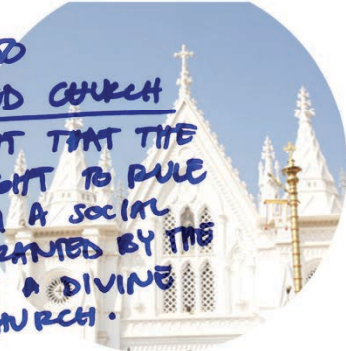 TO
D CHURCH
T THAT THE
GHT TO RULE
A SOCIAL
RANTED BY THE
A DIVINE
HURCH.